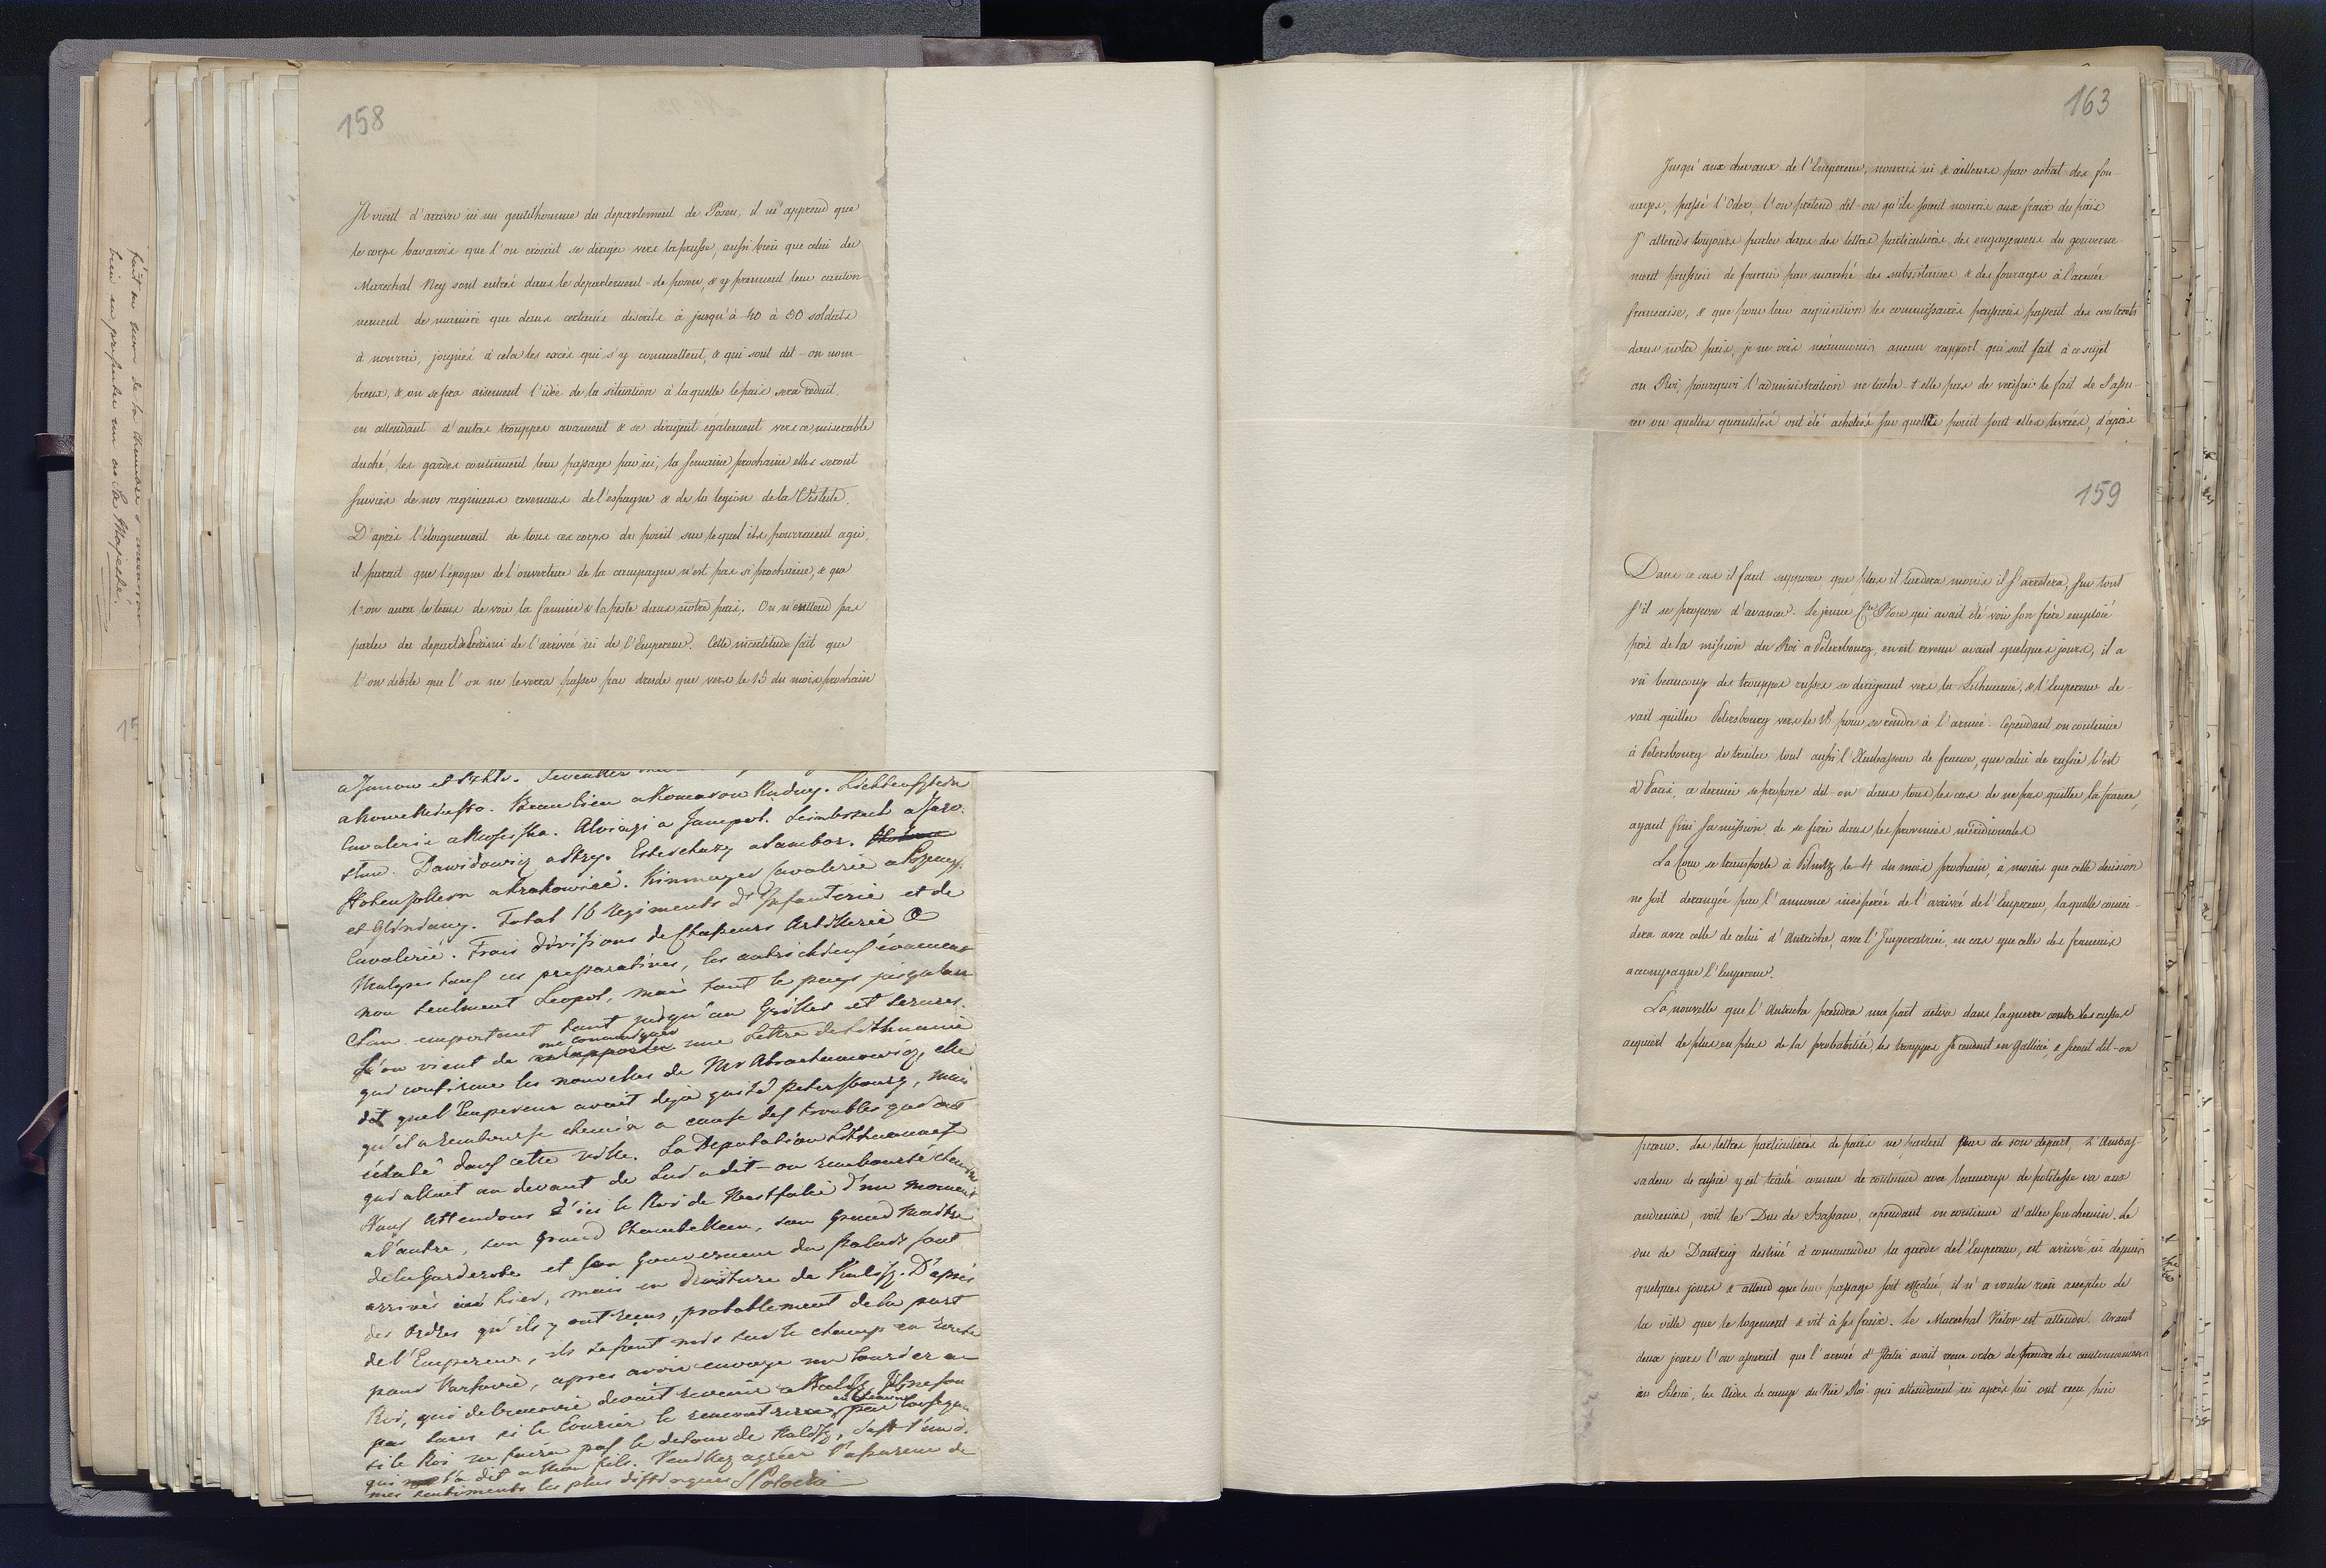 158
Il vient d'arriver ici un gentilhomme du departement de Posen, il m'apprend que
le corps bavarois que l'on croiait se diriger vers la prusse, aussi bien que celui du
Marechal Ney sont entrés dans le departement de posen, & y prennent leur canton-
nement de maniere que dans certains districts à jusqu'à 40 à 50 soldats
à nourrir, joignés à cela les excès qui s'y commettent, & qui sont dit-on nom-
breux, & on se fera aisement l'idée de la situation à laquelle le païs sera reduit.
en attendant d'autres trouppes avancent & se dirigent également vers ce miserable
duché, les gardes continuent leur passage par ici, la semaine prochaine elles seront
suivies de nos regimens revenans de l'espagne & de la legion de la Vistule.
D'après l'éloignement de tous ces corps du point sur lequel ils pourraient agir,
il parait que l'époque de l'ouverture de la campagne n'est pas si prochaine, & que
l'on aura le tems de voir la famine & la peste dans notre païs. On n'entend pas
parler du depart de Paris ni de l'arrivée ici de l'Empereur. Cette incertitude fait que
l'on debite que l'on ne le verra passer par dresde que vers le 15 du mois prochain
a Komarno Rudny. Lichtenstein
Cavalerie a Mosciska. Alvinzi a Jampol.
Dawidowicz a Stry. Esterhazy a Sambor.
Hohenzollern a Krakowice. Kinmayer Cavalerie
Total 16 Regiments d'Infanterie et de
Cavalerie. Trois divisions de Chasseurs Artillerie
Malgré tous ces preparatives, les autrichiens évacuent
non seulement Leopol, mais tout le pays jusqu'au
emportant tout jusqu'au Grilles et Serures.
L'on vient de me communiquer une Lettre de Lithuanie
qui confirme les nouvelles de Mr Abrachamowicz, elle
dit que l'Empereur avait deja quité Petersbourg, mais
qu'il a rembourse chemin a cause des troubles qui ont
éclaté dans cette ville. La Deputation Lithuanaise
qui allait au devant de Lui a dit-on rembourse chemin
Nous attendons d'ici le Roi de Westfalie d'un moment
a l'autre, son grand Chambellan, son Grand Maitre
de la Garderobe et son Gouverneur du Palais sont
arrivés hier, mais en droiture de Kalisz. D'après
des Ordres qu'ils y ont reçus, probablement de la part
de l'Empereur, ils se sont mis sur le champ en route
pour Varsovie, apres avoir envoye un Courier au
Roi, qui devait revenir a Kalisz
si le Courier le rencontrera
si le Roi ne faira pas le detour de Kalisz, c'est l'un d.
qui l'a dit a Mon fils. Veuillez agréer l'assurance de
mes sentiments les plus distingues SPotocki
163
Jusqu'aux chevaux de l'Empereur, nourris ici & ailleurs par achat des fou-
rages, passé l'Oder, l'on pretend dit-on qu'ils soient nourris aux fraix du païs
J'attends toujours parler dans des lettres particulières des engagemens du gouverne-
ment prussien de fournir par marché des subsistances & des fourages à l'armée
francaise, & que pour leur acquisition les commissaires prussiens passent des contrats
dans notre païs, je ne vois néanmoins aucun rapport qui soit fait à ce sujet
au Roi, pourquoi l'administration ne tache-t-elle pas de verifier le fait de s'assu-
rer ou quelles quantités ont été achetées sur quelle point sont elles livrées, d'après
159
Dans ce cas il faut supposer que plus il tardera moins il s'arretera, sur tout
s'il se propose d'avancer. Le jeune Cte Bose qui avait été voir son frère emploié
près de la mission du Roi a Petersbourg, en est revenu avant quelques jours, il a
vû beaucoup des trouppes russes se dirigeant vers la Lithuanie, & l'Empereur de-
vait quitter Petersbourg vers le pour se rendre à l'armée. Cependant on continue
à Petersbourg de traiter tout aussi l'Ambassadeur de france, que celui de russie l'est
à Paris, ce dernier se propose dit-on dans tous les cas de ne pas quitter la france,
ayant fini sa mission, de se fixer dans les provinces méridionales
La Cour se transporte à Pilnitz le 4 du mois prochain, à moins que cette decision
ne soit derangée par l'annonce inespérée de l'arrivée de l'Empereur, laquelle coinci-
dera avec celle de celui d'Autriche, avec l'Imperatrice, en cas que celle des francais
accompagne l'Empereur.
La nouvelle que l'Autriche prendra une part active dans la guerre contre les russes
acquiert de plus en plus de la probabilité, les trouppes se rendent en Gallicie, & seront dit-on
pereur. Les lettres particulières de paris ne parlent pas de son depart, L'Ambas-
sadeur de russie y est traité comme de coutume avec beaucoup de politesse va aux
audiences, voit le Duc de Bassano, cependant on continue d'aller son chemin. Le
duc de Dantzig destiné à commander la garde de l'Empereur, est arrivé ici depuis
quelques jours & attend que leur passage soit effectué, il n'a voulu rien accepter de
la ville que le logement & vit à ses fraix. Le Marechal Victor est attendu. Avant
deux jours l'on assurait que l'armée d'Italie avait reçue ordre de prendre des cantonnemens
en Silesie, les Aides de camp du Vice Roi qui attendaient ici après lui ont reçu hier